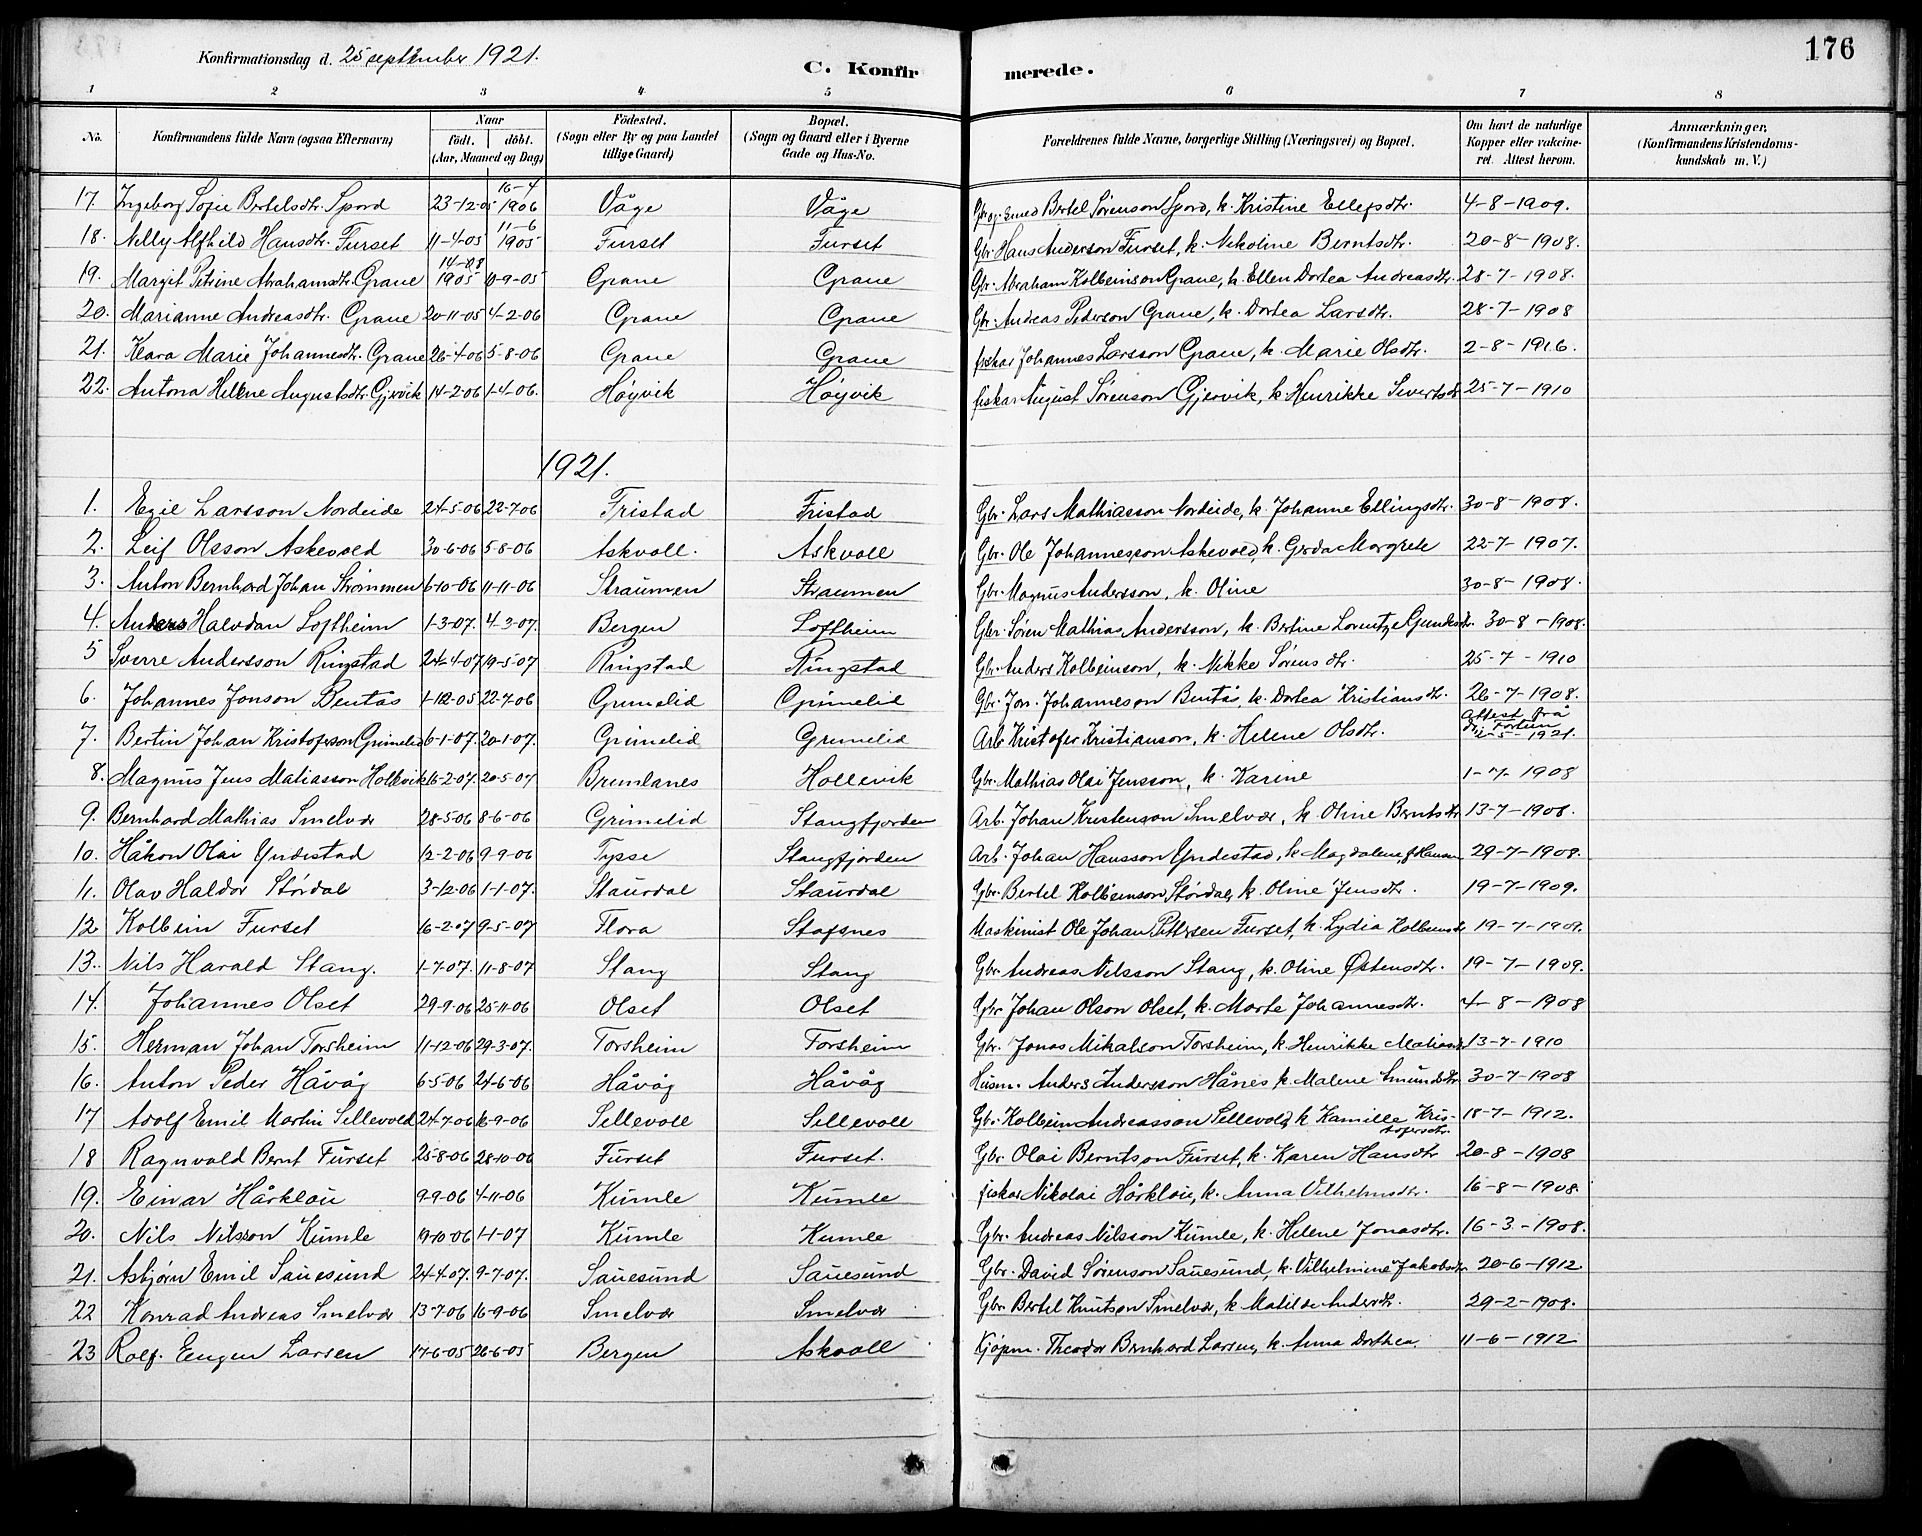 176
Konfirmationsdag d. 25 september 1921.
C. Konfirmerede.
1 2 3 4 5 6 7 8
No. Konfirmandens fulde Navn (ogsaa Efternavn) Naar født. døbt. (Aar, Maaned og Dag) Fødested. (Sogn eller By og paa Landet tillige Gaard) Bopæl. (Sogn og Gaard eller i Byerne Gade og Hus-No. Forældrenes fulde Navne, borgerlige Stilling (Næringsvei) og Bopæl. Om havt de naturlige Kopper eller vakcineret. Attest herom. Anmærkninger. (Konfirmandens Kristendomskundskab m. V.)
17. Ingeborg Sofie Bertelsdtr. Spord 23-12-05 16-4 1906 Våge Våge Gbr. og smed Bertel Sørenson Spord, k. Kristine Ellefsdtr. 4-8-1909.
18. Nelly Alfhild Hansdtr. Furset 11-4-05 11-6 1905 Furset Furset Gbr. Hans Anderson Furset, k. Nikoline Berntsdtr. 20-8-1908.
19. Margit Petrine Abrahamsdtr. Grane 14-08 1905 10-9-05 Grane Grane Gbr. Abraham Kolbeinson Grane, k. Ellen Dortea Andreasdtr. 28-7-1908.
20. Marianne Andreasdtr. Grane 20-11-05 4-2-06 Grane Grane Gbr. Andreas Pederson Grane, k. Dortea Larsdtr. 28-7-1908
21. Klara Marie Johannesdtr. Grane 26-4-06 5-8-06 Grane Grane fiskar Johannes Larsson Grane, k. Marie Olsdtr. 2-8-1916.
22. Antona Helene Augustsdtr. Gjervik 14-2-06 1-4-06. Høyvik Høyvik fiskar August Sørenson Gjervik, k. Henrikke Sivertsdtr 25-7-1910
1921.
1. Egil Larsson Nordeide 24-5-06 22-7-06 Fristad Fristad Gbr. Lars Mathiasson Nordeide, k. Johanne Ellingsdtr. 30-8-1908.
2. Leif Olsson Askevold 30-6-06 5-8-06 Askvoll. Askvoll Gbr. Ole Johannesson Askevold, k. Gerda Margrete 22-7-1907.
3. Anton Bernhard Johan Strømmen 6-10-06 11-11-06 Straumen Straumen Gbr. Magnus Andersson, k. Oline 30-8-1908.
4. Anders Halvdan Loftheim 1-3-07. 4-3-07. Bergen Loftheim Gbr. Søren Mathias Andersson, k. Bertine Lorentze Gundersdtr. 30-8-1908.
5 Sverre Andersson Ringstad 24-4-07 19-5-07 Ringstad Ringstad Gbr. Anders Kolbeinson, k. Nikke Sørensdtr. 25-7-1910
6. Johannes Jonson Bentås 1-12-05 22-7-06 Grimelid Grimelid Gbr. Jon Johanneson Bentås, k. Dortea Kristiansdtr. 26-7-1908.
7. Bertin Johan Kristoferson Grimelid 6-1-07. 20-1-07. Grimelid Grimelid Arb Kristofer Kristianson, k. Helene Olsdtr. Attest frå Dr. Fortun 2-5-1921.
8. Magnus Jens Matiasson Hollevik 16-2-07. 20-5-07 Brumlanes Hollevik Gbr. Mathias Olai Jensson, k. Karine 1-7-1908
9. Bernhard Mathias Smelvær 28-5-06 8-6-06 Grimelid Stangfjorden Arb. Johan Kristenson Smelvær, k. Oline Berntsdtr 13-7-1908.
10. Håkon Olai Yndestad 12-2-06 9-9-06 Tysse Stangfjorden Arb. Johan Hansson Yndestad, k. Magdalene J. Hansen 29-7-1908.
11. Olav Haldor Stórdal 3-12-06 1-1-07. Staurdal Staurdal Gbr. Bertel Kolbeinson Stórdal, k. Oline Jensdtr. 19-7-1909.
12. Kolbein Furset 16-2-07 9-5-07 Flora Stafsnes Maskinist Ole Johan Pettersen Furset, k. Lydia Kolbensdtr 19-7-1909.
13. Nils Harald Stang. 1-7-07. 11-8-07 Stang Stang Gbr. Andreas Nilsson Stang, k. Oline Østensdtr. 19-7-1909.
14. Johannes Olset 29-9-06 25-11-06 Olset Olset Gbr Johan Olson Olset, k. Marte Johannesdtr. 4-8-1908
15. Herman Johan Torsheim 11-12-06 29-3-07. Torsheim Torsheim Gbr. Jonas Mikalson Torsheim, k. Henrikke Matiasdtr 13-7-1910
16. Anton Peder Håvåg 6-5-06 24-6-06 Håvåg Håvåg Husm. Anders Andersson Hånes k. Malene Amundsdtr 30-7-1908
17 Adolf Emil Martin Sellevold 24-7-06 16-9-06 Sellevoll Sellevoll Gbr. Kolbein Andreasson Sellevold, k Kamille Kristofersdtr. 18-7-1912.
18 Ragnvald Bernt Furset 25-8-06 28-10-06 Furset Furset. Gbr. Olai Berntson Furset, k. Karen Hansdtr 20-8-1908
19. Einar Hårklau 9-9-06 4-11-06 Kumle Kumle fiskar Nikolai Hårklau, k. Anna Vilhelmsdtr. 16-8-1908.
20. Nils Nilsson Kumle 19-10-06 1-1-07 Kumle Kumle Gbr. Andreas Nilsson Kumle, k. Helene Jonasdtr. 16-3-1908.
21. Asbjørn Emil Sauesund 24-4-07. 9-7-07. Sauesund Sauesund Gbr. David Sørenson Sauesund, k. Vilhelmine Jakobsdtr 20-6-1912.
22 Konrad Andreas Smelvær 13-7-06 16-9-06 Smelvær Smelvær Gbr Bertel Knutson Smelvær, k Matilde Andersdtr. 29-2-1908.
23 Rolf. Eugen Larsen 17-6-05 26-6-05 Bergen Askvoll Kjøpm. Theodor Bernhard Larsen, k. Anna Dorthea. 11-6-1912